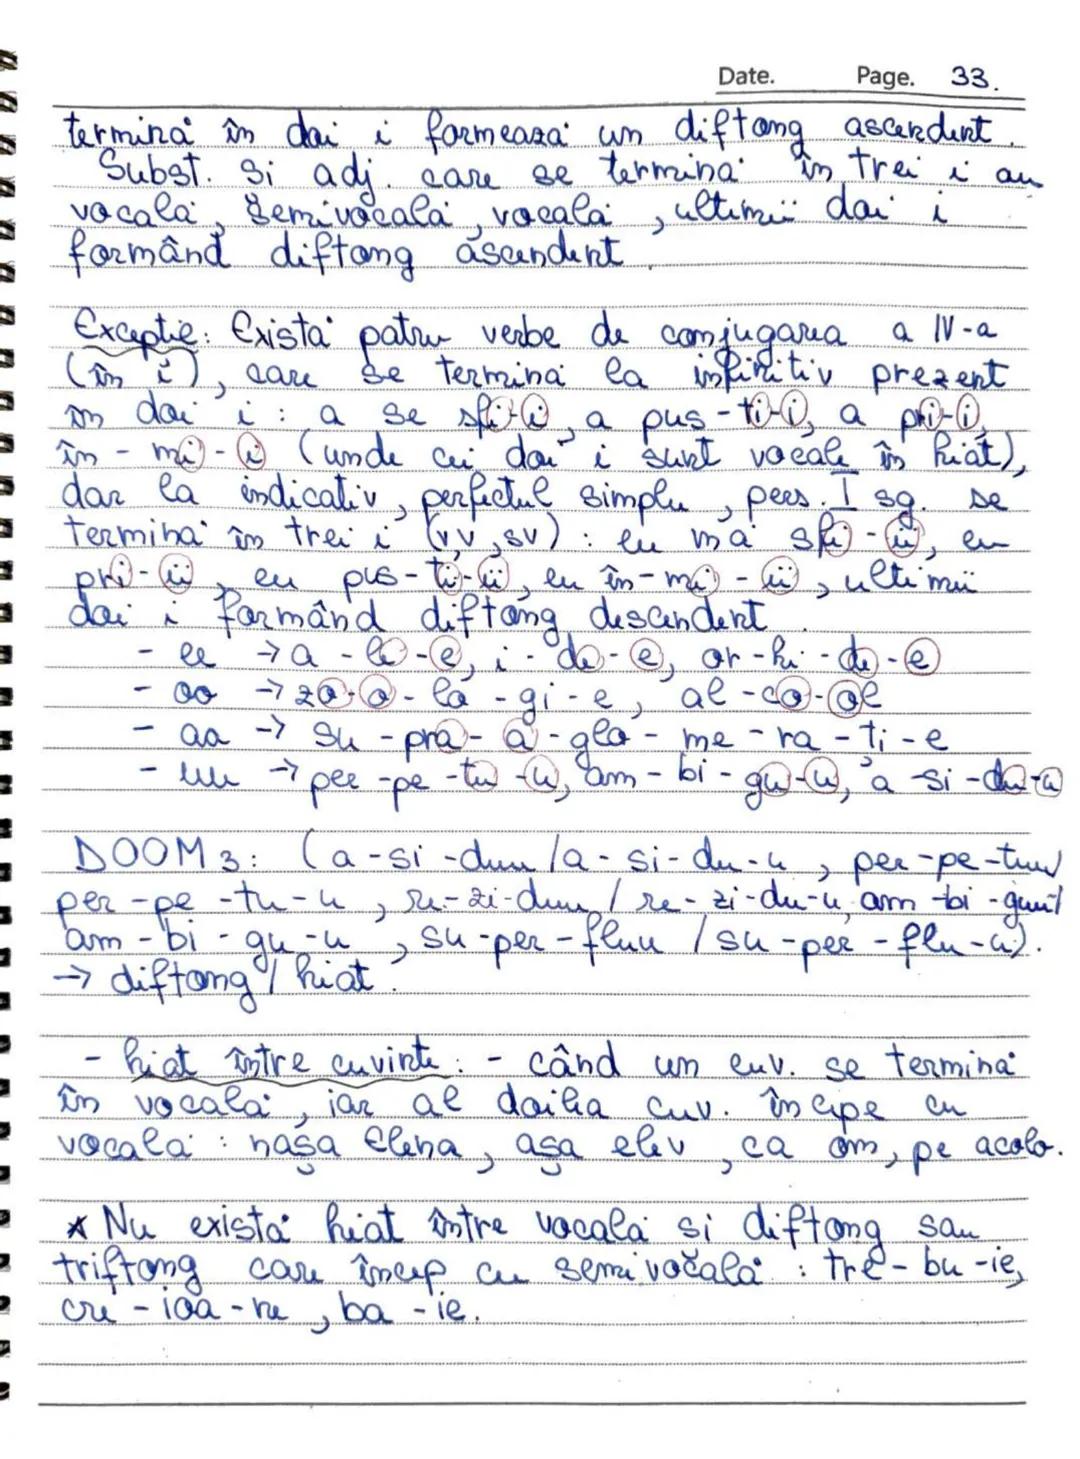 Date. Page. 33.
termină în doi i formează un diftong ascendent.
Subst. si adj. care se termină în trei i au
vocală, semivocală, vocală, ultimii doi i
formând diftong ascendent.
Excepție: Există patru verbe de conjugarea a IV-a
(în i), care se termină la infinitiv prezent
în doi i: a se sfi-i, a pus-ti-i, a pri-i,
în-mi-i (unde cei doi i sunt vocale în hiat),
dar la indicativ, perfectul simplu, pers. I sg. se
termină în trei i (vv, sv): eu mă sfi-ii, eu
pri-ii, eu pus-ti-ii, eu în-mi-ii, ultimii
doi i formând diftong descendent.
- ee → a-le-e, i-de-e, or-hi-de-e
- oo → zo-o-lo-gi-e, al-co-ol
- aa → su-pra-a-glo-me-ra-ți-e
- uu → per-pe-tu-u, am-bi-gu-u, a-si-du-u
DOOM 3: (a-si-duu/a-si-du-u, per-pe-tuu/
per-pe-tu-u, re-zi-duu/re-zi-du-u, am-bi-guu/
am-bi-gu-u, su-per-fluu/su-per-flu-u).
→ diftong/hiat.
- hiat între cuvinte: - când un cuv. se termină
în vocală, iar al doilea cuv. începe cu
vocală: nașa Elena, așa elev, ca om, pe acolo.
* Nu există hiat între vocală si diftong sau
triftong care încep cu semivocală: tre-bu-ie,
cre-ioa-ne, ba-ie.